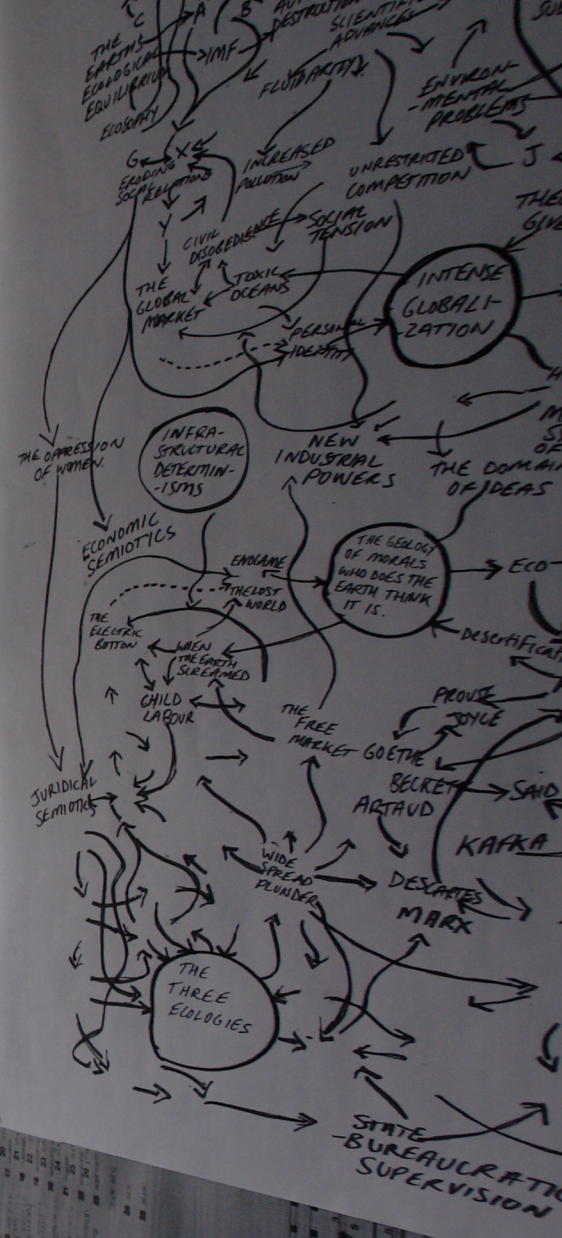 C
A
B
DESTRUCTION
SCIENTIFIC
ADVANCES
THE
EARTHS
ECOLOGICAL
EQUILIBRIUM
IMF
ECOSOPHY
FLUIDARITY
ENVIRON-
-MENTAL
PROBLEMS
G
X
ERODING
SOCIAL
RELATIONS
INCREASED
POLLUTION
UNRESTRICTED
COMPETITION
J
Y
CIVIL
DISOBEDIENCE
SOCIAL
TENSION
THE
GLOBAL
MARKET
TOXIC
OCEANS
INTENSE
GLOBALI-
-ZATION
PERSONAL
IDENTITY
THE OPPRESSION
OF WOMEN.
INFRA-
STRUCTURAL
DETERMIN-
-ISMS
NEW
INDUSTRIAL
POWERS
THE DOMAIN
OF IDEAS
ECONOMIC
SEMIOTICS
ENDGAME
THE LOST
WORLD
THE GEOLOGY
OF MORALS
WHO DOES THE
EARTH THINK
IT IS.
ECO-
THE
ELECTRIC
BUTTON
WHEN
THE EARTH
SCREAMED
CHILD
LABOUR
THE
FREE
MARKET
JOYCE
GOETHE
BECKET
ARTAUD
SAID
KAFKA
JURIDICAL
SEMIOTICS
WIDE
SPREAD
PLUNDER
DESCARTES
MARX
THE
THREE
ECOLOGIES
STATE
-BUREAUCRATIC
SUPERVISION